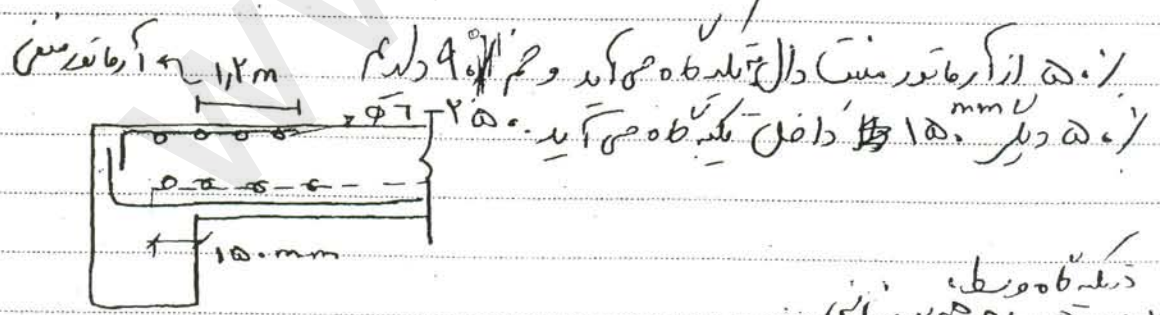 ٪۵۰ از آرماتور مثبت دال تا تکیه‌گاه می‌آید و خم ۹۰° داریم
٪۵۰ دیگر ۱۵۰ mm داخل تکیه‌گاه می‌آید.
آرماتور منفی
۱٫۲ m
φ۶-۲۵۰
۱۵۰ mm
در تکیه‌گاه وسط: